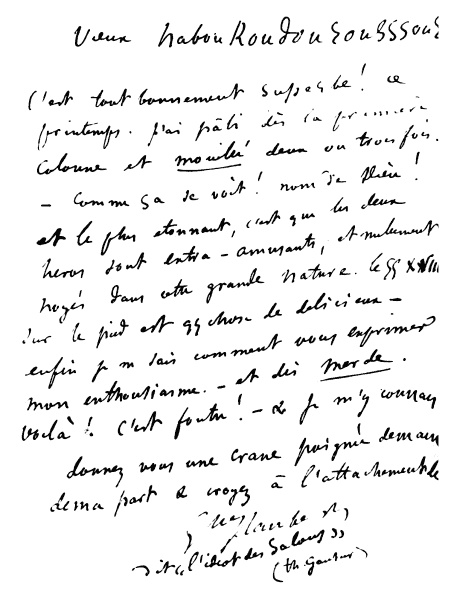 Vieux NabouKoudouSouSSSouS
C'est tout bonnement superbe ! ce
printemps. j'ai pâli dès la première
Colonne et mouillé deux ou trois fois.
– Comme ça se voit ! nom de Dieu !
et le plus étonnant, c'est que les deux
heros sont extra-amusants, et nullement
noyés dans cette grande nature. le §§ XXVIII
sur le pied est qq chose de délicieux –
enfin je ne sais comment vous exprimer
mon enthousiasme. – et dis merde.
voilà ! C'est foutu ! – & je m'y connais
donnez vous une crane poignée de main
de ma part & croyez à l'attachement de
Gve Flaubert
dit « l'idiot des Salons »
(Th Gautier)